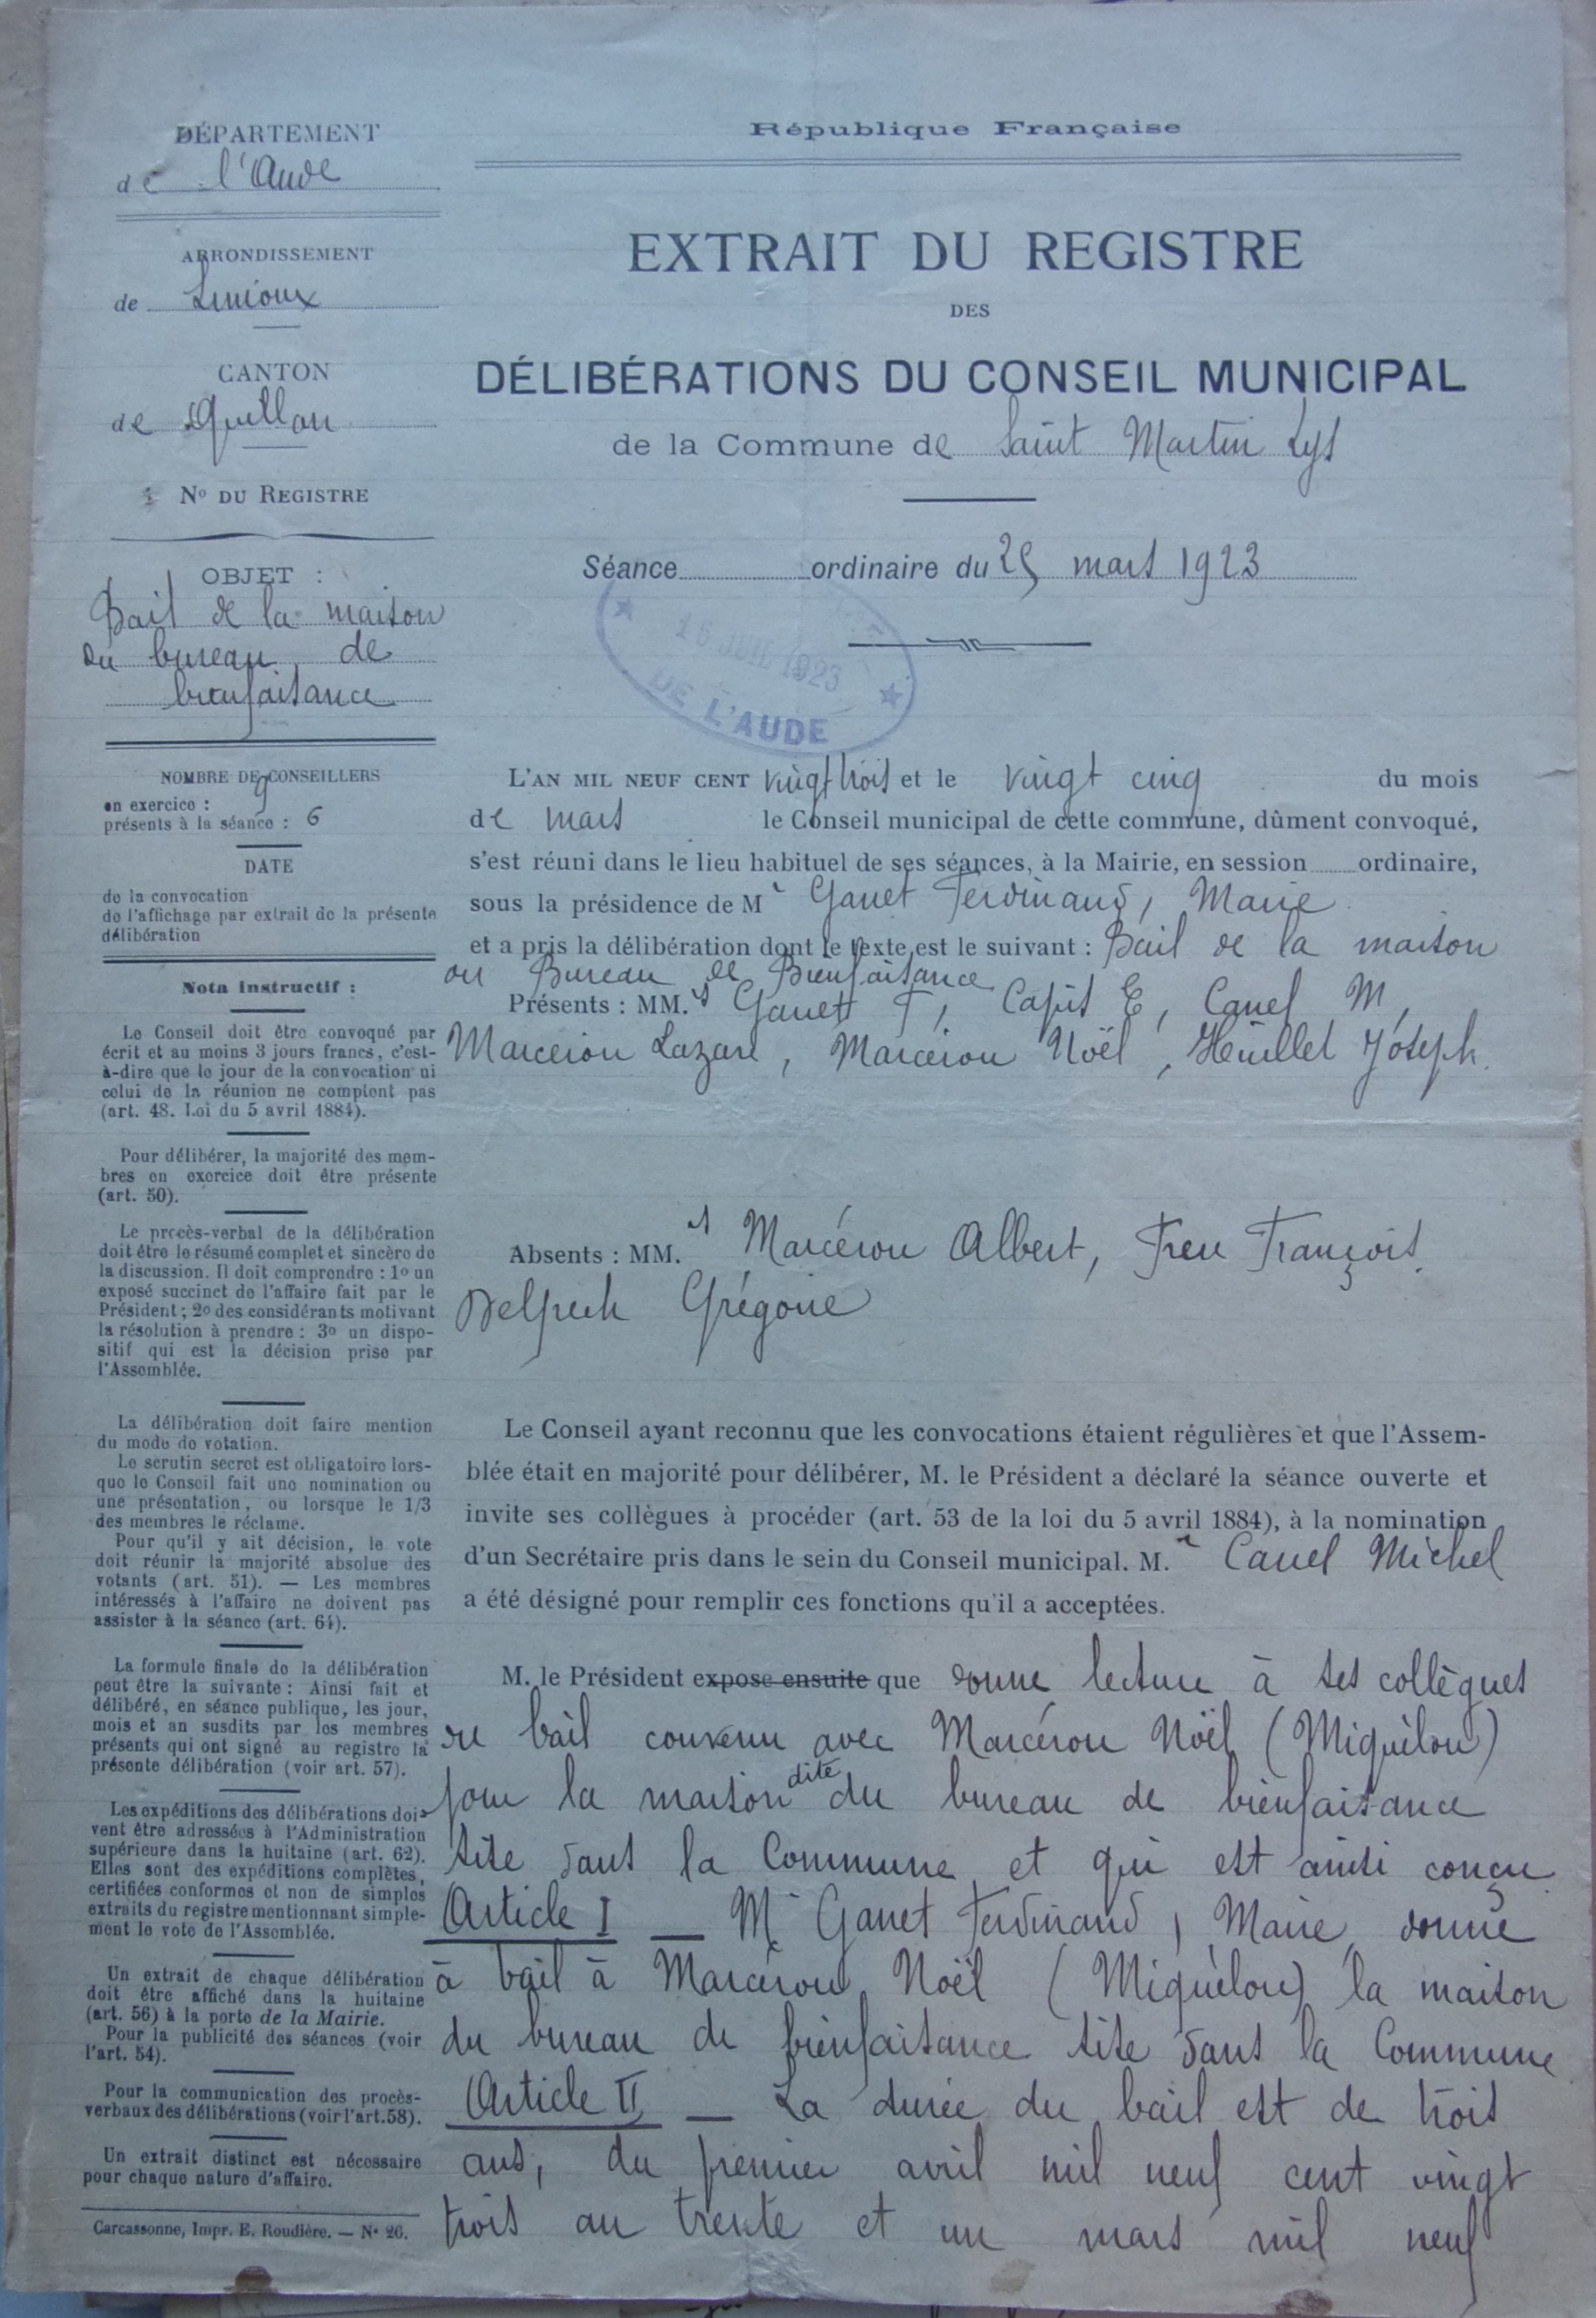 DÉPARTEMENT
de l'Aude
ARRONDISSEMENT
de Limoux
CANTON
de Quillan
No DU REGISTRE
OBJET :
Bail de la maison
du bureau de
bienfaisance
NOMBRE DE CONSEILLERS
en exercice : 9
présents à la séance : 6
DATE
de la convocation
de l'affichage par extrait de la présente
délibération
Nota instructif :
Le Conseil doit être convoqué par
écrit et au moins 3 jours francs, c'est-
à-dire que le jour de la convocation ni
celui de la réunion ne comptent pas
(art. 48. Loi du 5 avril 1884).
Pour délibérer, la majorité des mem-
bres en exercice doit être présente
(art. 50).
Le procès-verbal de la délibération
doit être le résumé complet et sincère de
la discussion. Il doit comprendre : 1o un
exposé succinct de l'affaire fait par le
Président ; 2o des considérants motivant
la résolution à prendre : 3o un dispo-
sitif qui est la décision prise par
l'Assemblée.
La délibération doit faire mention
du mode de votation.
Le scrutin secret est obligatoire lors-
que le Conseil fait une nomination ou
une présentation, ou lorsque le 1/3
des membres le réclame.
Pour qu'il y ait décision, le vote
doit réunir la majorité absolue des
votants (art. 51). — Les membres
intéressés à l'affaire ne doivent pas
assister à la séance (art. 64).
La formule finale de la délibération
peut être la suivante : Ainsi fait et
délibéré, en séance publique, les jour,
mois et an susdits par les membres
présents qui ont signé au registre la
présente délibération (voir art. 57).
Les expéditions des délibérations doi-
vent être adressées à l'Administration
supérieure dans la huitaine (art. 62).
Elles sont des expéditions complètes,
certifiées conformes et non de simples
extraits du registre mentionnant simple-
ment le vote de l'Assemblée.
Un extrait de chaque délibération
doit être affiché dans la huitaine
(art. 56) à la porte de la Mairie.
Pour la publicité des séances (voir
l'art. 54).
Pour la communication des procès-
verbaux des délibérations (voir l'art. 58).
Un extrait distinct est nécessaire
pour chaque nature d'affaire.
Carcassonne, Impr. E. Roudière. — No 26.
République Française
EXTRAIT DU REGISTRE
DES
DÉLIBÉRATIONS DU CONSEIL MUNICIPAL
de la Commune de Saint Martin Lys
Séance ordinaire du 25 mars 1923
16 JUIL 1923
DE L'AUDE
L'AN MIL NEUF CENT vingt trois et le vingt cinq du mois
de mars le Conseil municipal de cette commune, dûment convoqué,
s'est réuni dans le lieu habituel de ses séances, à la Mairie, en session ordinaire,
sous la présidence de Mr Ganet Ferdinand, Maire
et a pris la délibération dont le texte est le suivant : Bail de la maison
du Bureau de Bienfaisance
Présents : MM.rs Ganet F, Capis E, Canel M,
Marcerou Lazare, Marcerou Noël, Heuillet Joseph.
Absents : MM.rs Marcérou Albert, Freu François.
Delpech Grégoire
Le Conseil ayant reconnu que les convocations étaient régulières et que l'Assem-
blée était en majorité pour délibérer, M. le Président a déclaré la séance ouverte et
invite ses collègues à procéder (art. 53 de la loi du 5 avril 1884), à la nomination
d'un Secrétaire pris dans le sein du Conseil municipal. M.r Canel Michel
a été désigné pour remplir ces fonctions qu'il a acceptées.
M. le Président expose ensuite que donne lecture à ses collègues
du bail convenu avec Marcérou Noël (Miquèlou)
pour la maison dite du bureau de bienfaisance
sise dans la Commune et qui est ainsi conçu
Article I — Mr Ganet Ferdinand, Maire, donne
à bail à Marcérou Noël (Miquèlou) la maison
du bureau de bienfaisance sise dans la Commune
Article II — La durée du bail est de trois
ans, du premier avril mil neuf cent vingt
trois au trente et un mars mil neuf